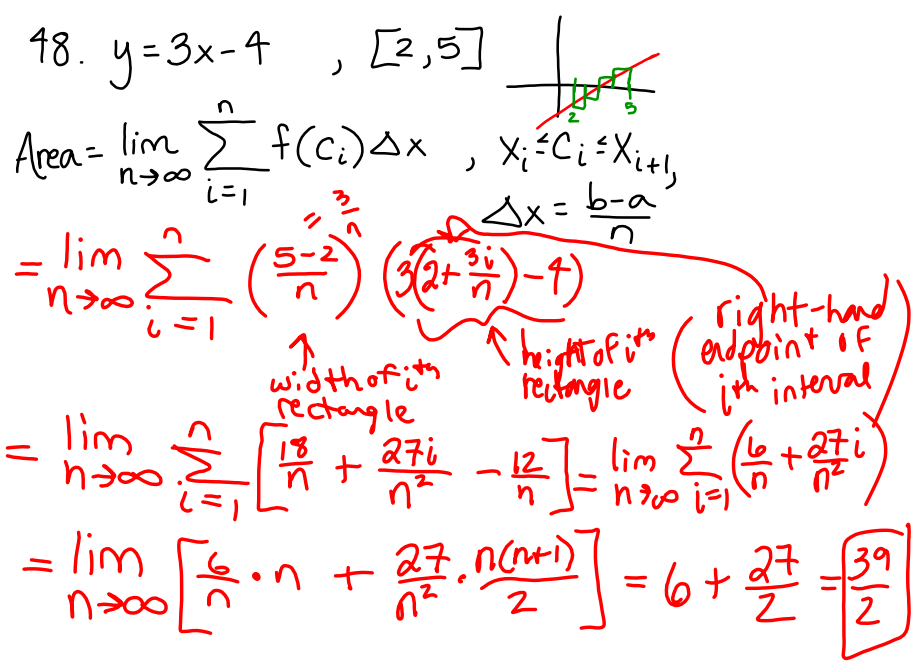 48. y = 3x - 4 , [2, 5]
2 5
Area = lim n→∞ Σ i=1 n f(Ci) Δx , Xi ≤ Ci ≤ Xi+1,
Δx = b-a/n
= 3/n
= lim n→∞ Σ i=1 n (5-2/n) (3(2 + 3i/n) - 4)
width of ith rectangle
height of ith rectangle
(right-hand endpoint of ith interval)
= lim n→∞ Σ i=1 n [18/n + 27i/n² - 12/n] = lim n→∞ Σ i=1 n (6/n + 27i/n²)
= lim n→∞ [6/n · n + 27/n² · n(n+1)/2] = 6 + 27/2 = 39/2